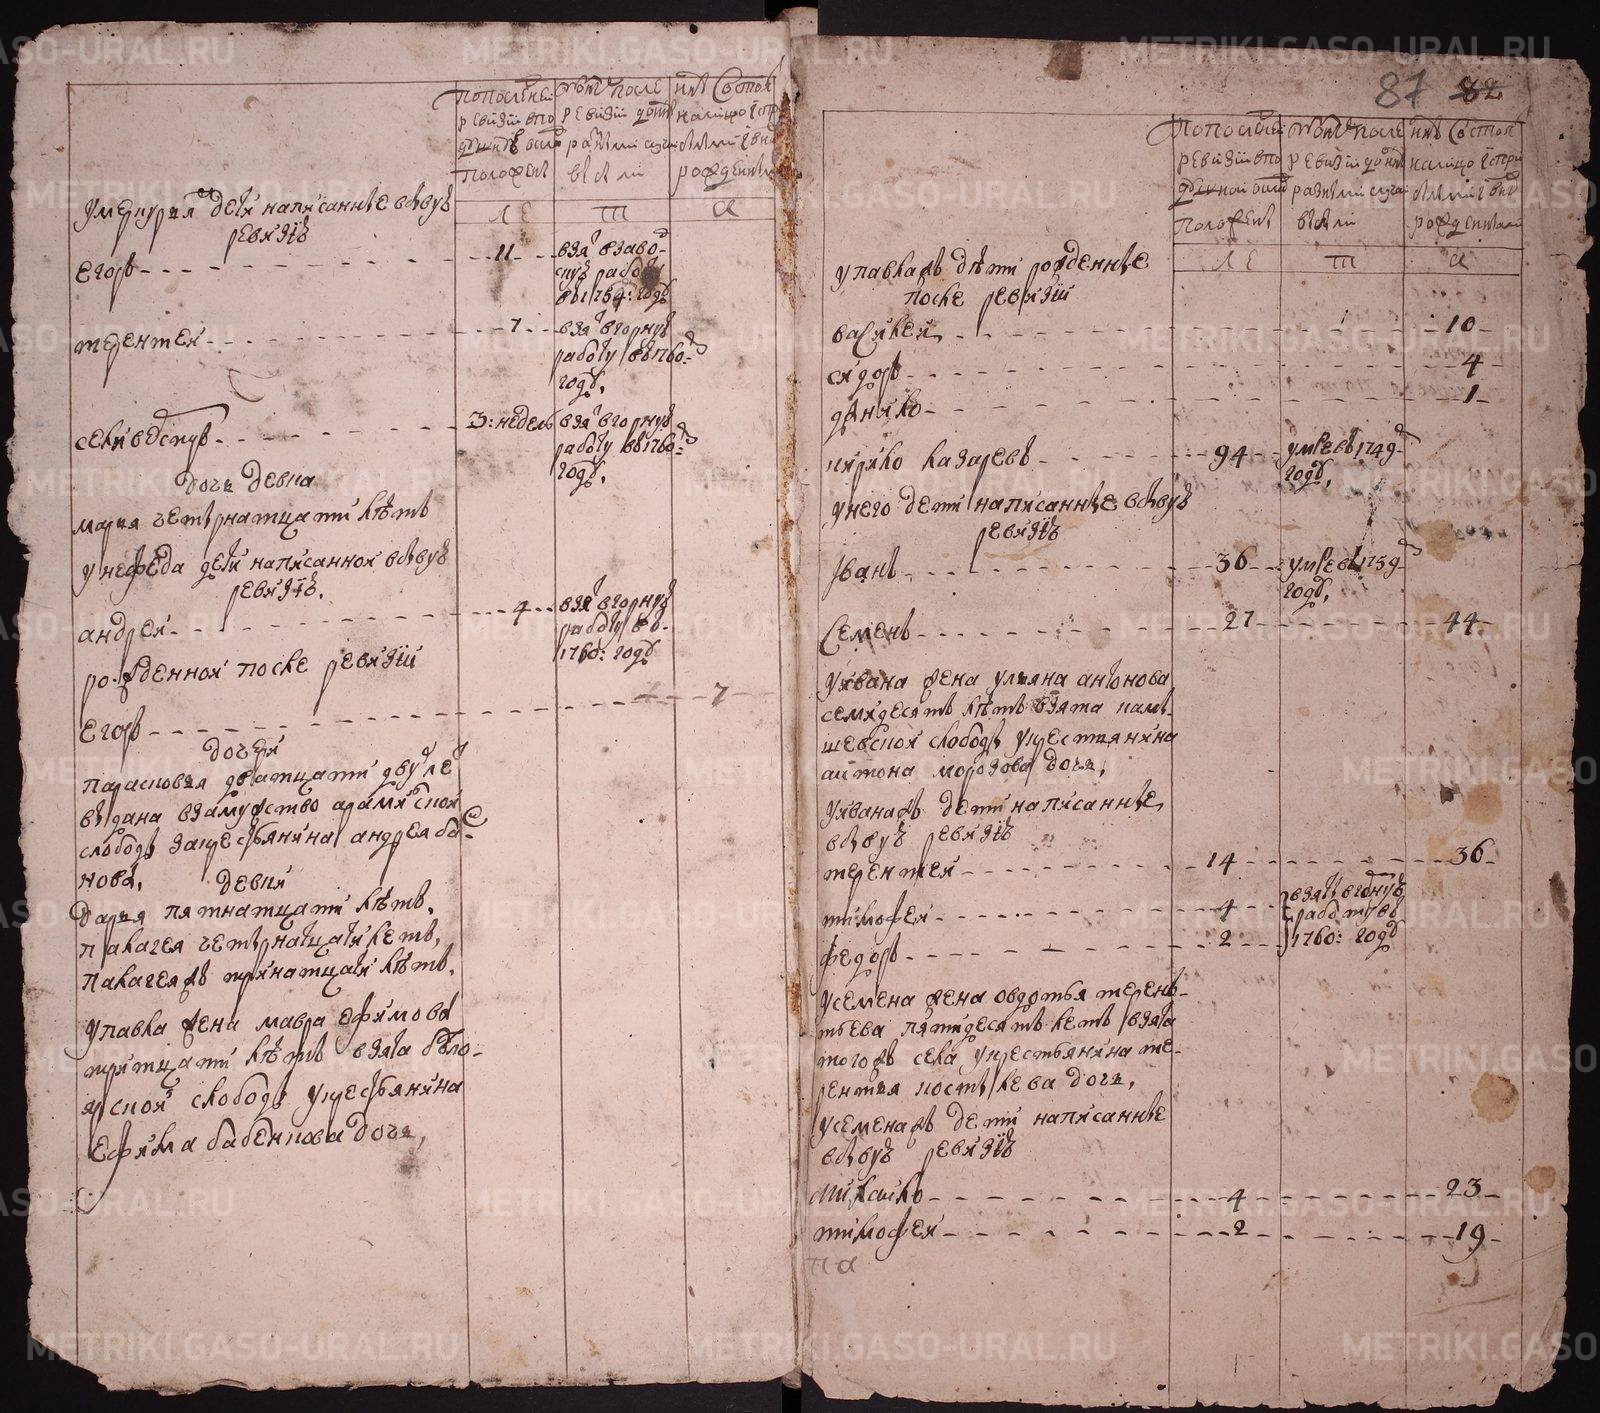 по последней
ревизии в по
душном окла
положены
из того после
ревизии
разными случаи
выбыли
ныне состоя
налицо и с при
былыми и вновь
рожденными
ле
т
а
у меркурья дети написанные в бывую
ревизию
егоръ 11 взят в заво-
скую работу
в 1764: году
терентей 7 взят в горную
работу в 1760-
году,
селиверстръ 3: недель взят в горную
работу в 1760-
году,
дочь девка
марья четырнатцати летъ
у нефеда дети написанной в бывую
ревизию,
андрей 4 взят в горную
работу в
1760: году
рожденной после ревизии
егоръ 7
дочери
парасковья дватцати двух лет
выдана в замужство арамилской
слободы за крестьянина андрея ба-
нова, девки
дарья пятнатцати летъ,
палагея четырнатцати летъ,
палагея жъ тринатцати летъ,
у павла жена мавра ефимова
тритцати летъ взята бело-
ярской слободы у крестьянина
ефима бабенкова дочь,
87 82
по последней
ревизии в по
душной оклад
положены
из того после
ревизии
разными случаи
выбыли
ныне состоя
налицо и с при
былыми и вновь
рожденными
ле
т
а
у павла жъ дети рожденные
после ревизии
василей 10
сидоръ 4
данило 1
кирило казаревъ 94 умре в 1749-
году,
у него дети написанные в бывую
ревизию
Иванъ 36 умре в 1759-
году,
Семенъ 27 44
у ивана жена ульяна антонова
семидесятъ летъ взята камы-
шевской слободы у крестьянина
антона морозова дочь,
у ивана жъ дети написанные
в бывую ревизию
терентей 14 36
тимофей 4 взяты в горную
работу в
федоръ 2 1760: году
у семена жена овдотья терень-
тьева пятидесятъ летъ взята
того жъ села у крестьянина те-
рентья костылева дочь,
у семена жъ дети написанные
в бывую ревизию
михайло 4 23
тимофей 2 19
METRIKI.GASO-URAL.RU